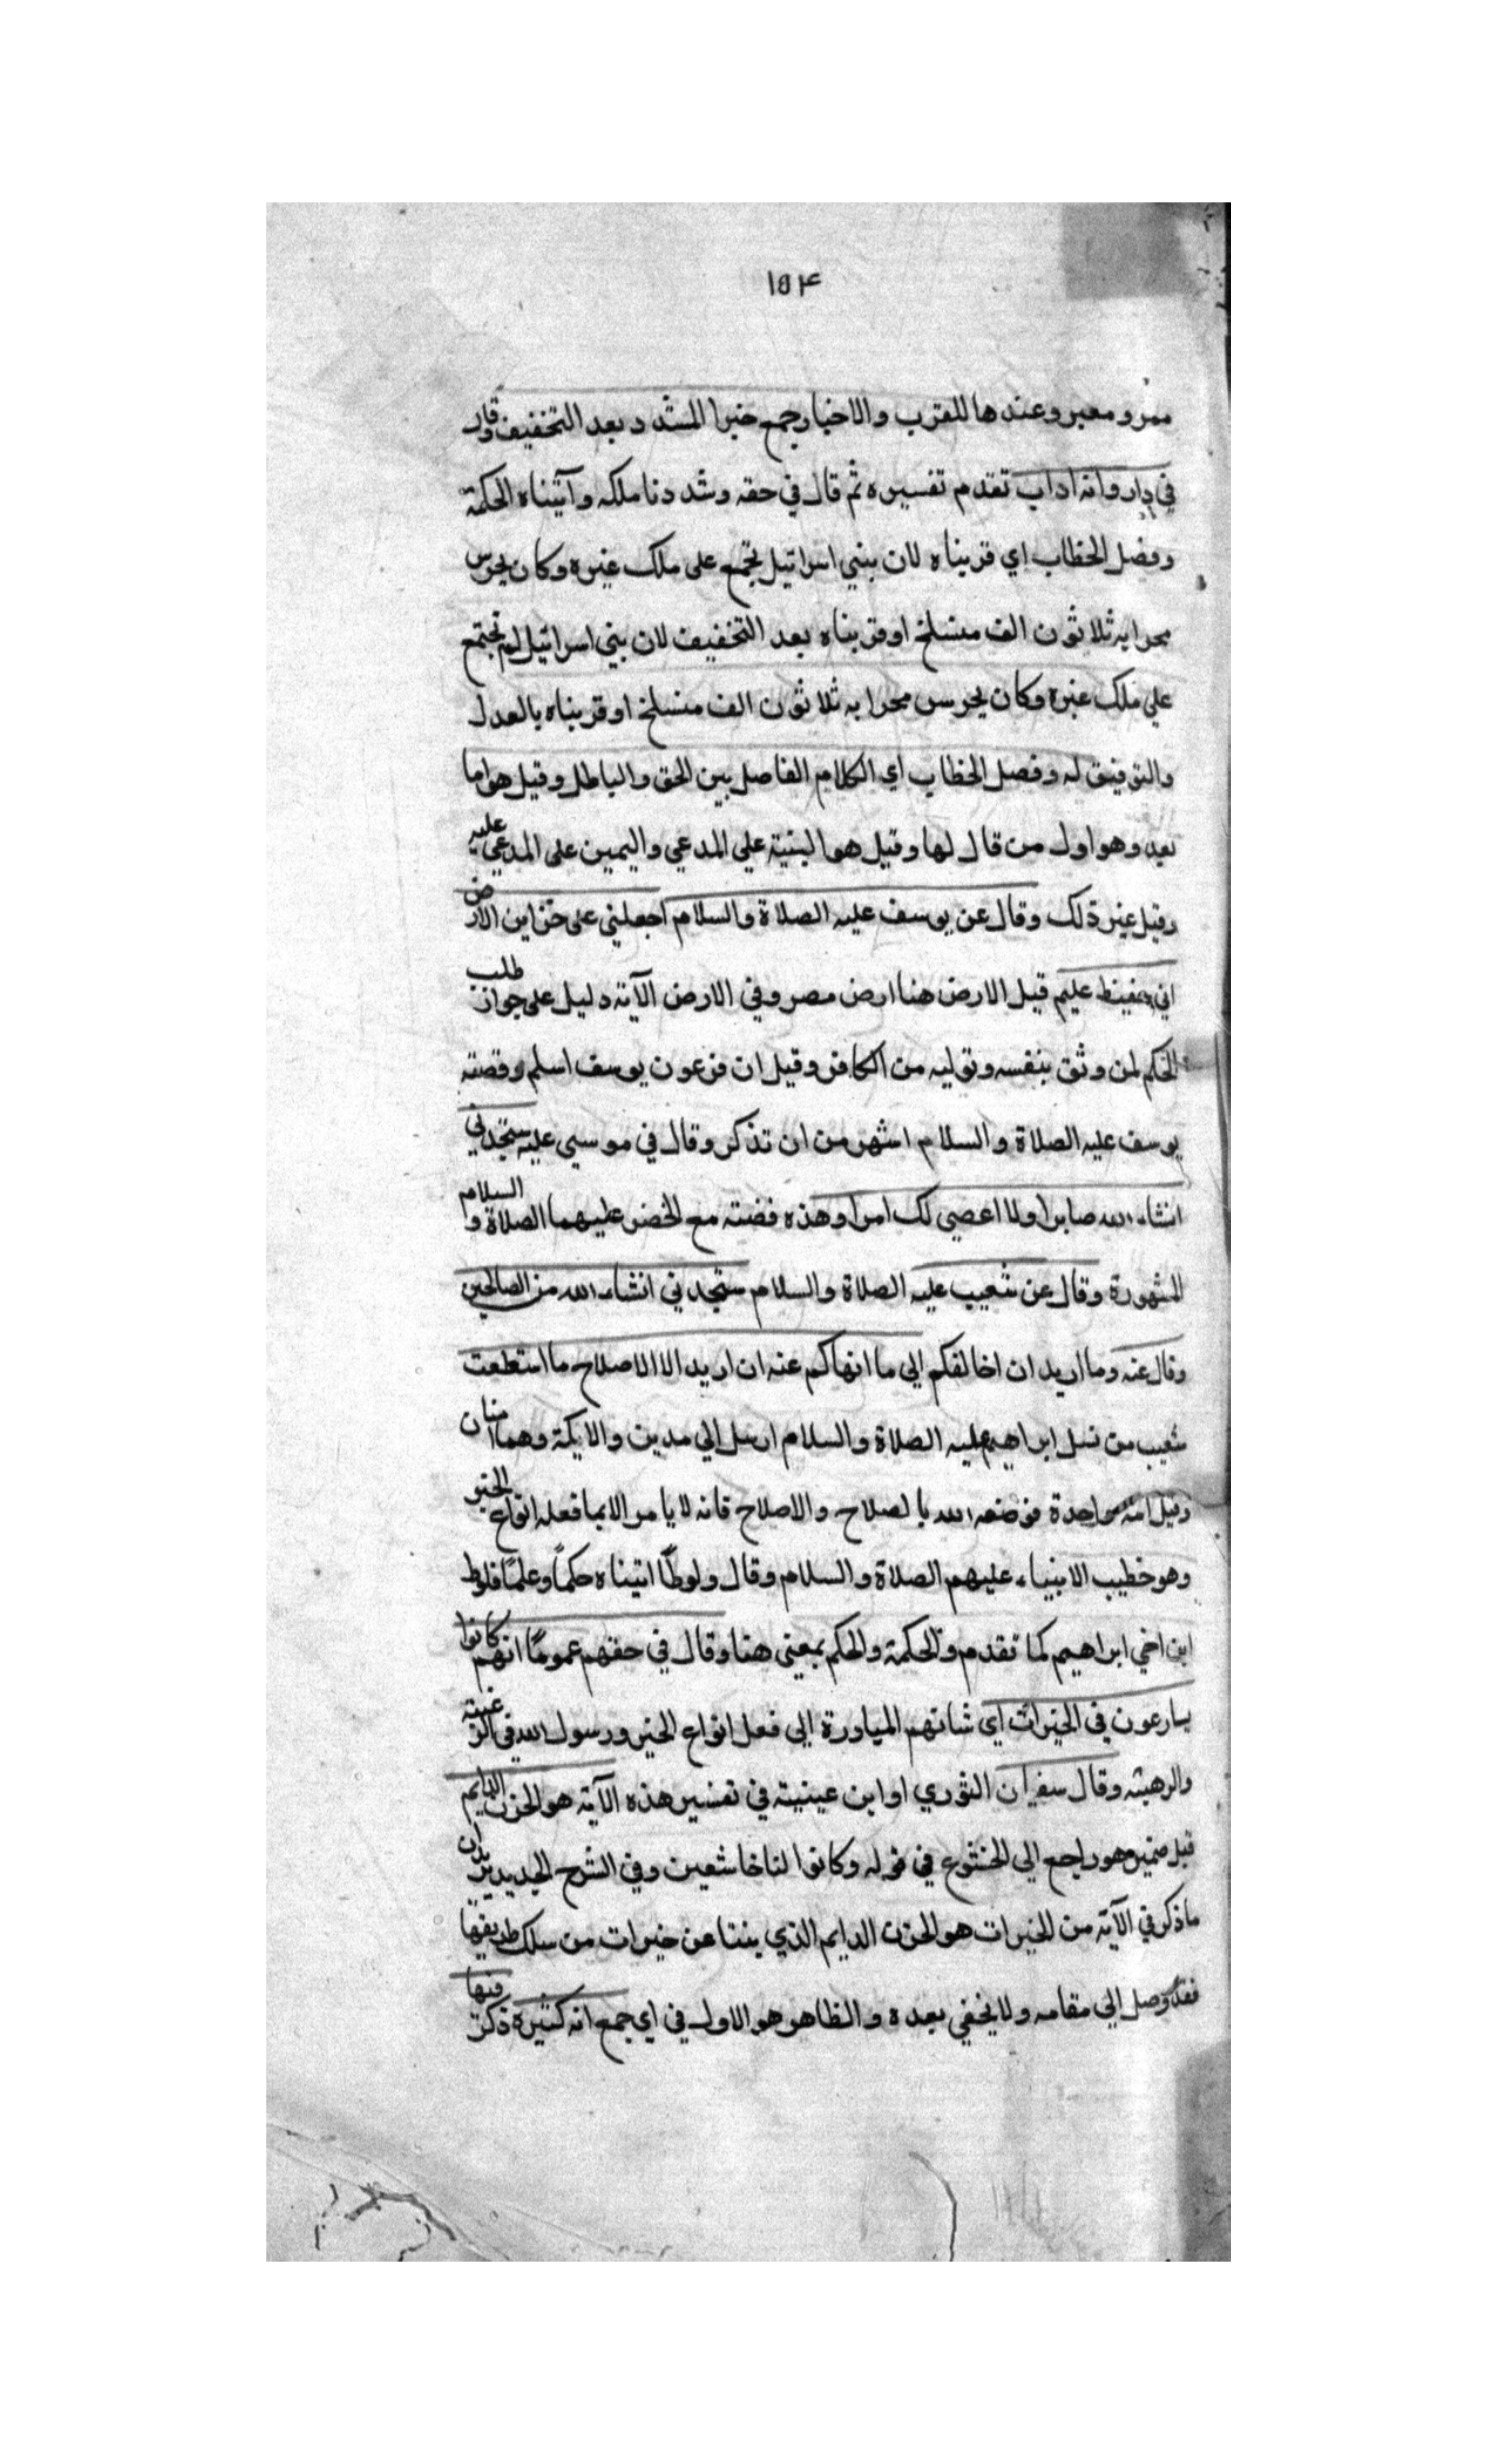 ١٥٤
ممر ومعبر وعندها للقرب والاخيار جمع خيرا المشدد بعد التخفيف وقال
في داود انه اواب تقدم تفسيره ثم قال في حقه وشددنا ملكه وآتيناه الحكمة
وفضل الخطاب اي قربناه لان بني اسرائيل تجمع على ملك غيره وكان يحرس
محرابه ثلاثون الف منسلخ او قربناه بعد التخفيف لان بني اسرائيل لم تجتمع
علي ملك غيره وكان يحرس محرابه ثلاثون الف منسلخ او قربناه بالعدل
والتوفيق له وفصل الخطاب اي الكلام الفاصل بين الحق والباطل وقيل هو اما
بعد وهو اول من قال لها وقيل هو البنية علي المدعي واليمين على المدعي عليه
وقيل غير ذلك وقال عن يوسف عليه الصلاة والسلام اجعلني على خزاين الارض
اني حفيظ عليم قيل الارض هنا ارض مصر وفي الارض الآية دليل على جواز طلب
الحكم لمن وثق بنفسه وتوليه من الكافر وقيل ان فرعون يوسف اسلم وقصته
يوسف عليه الصلاة والسلام اشهر من ان تذكر وقال في موسي عليه ستجدني
انشاء الله صابرا ولا اعصي لك امرا وهذه قضته مع الخضر عليهما الصلاة والسلام
المشهورة وقال عن شعيب عليه الصلاة والسلام ستجدني انشاء الله من الصالحين
وقال عنه وما اريد ان اخالفكم الي ما انهاكم عنه ان اريد الا الاصلاح ما استطعت
شعيب من نسل ابراهيم عليه الصلاة والسلام ارسل الي مدين والايكة وهما
وقيل امة واحدة فوصفه الله بالصلاح والاصلاح فانه لا يامر الا بما فعله انواع الخير
وهو خطيب الانبياء عليهم الصلاة والسلام وقال ولوطًا اتيناه حكمًا وعلمًا فلوط
ابن اخي ابراهيم كما تقدم والحكمة والحكم بمعنى هنا وقال في حقهم عمومًا انهم كانوا
يسارعون في الخيرات اي شانهم المبادرة الي فعل انواع الخير ورسول الله في الرغبته
والرهبته وقال سفيان الثوري او ابن عينية في تفسير هذه الآية هو الحزن الدايم
قيل وهو راجع الي الخشوع في قوله وكانوا لنا خاشعين وفي الشرح الجديد يريد ان
ما ذكر في الآية من الخيرات هو الحزن الدايم الذي ينشا عن خيرات من سلك طريقها
فقد وصل الي مقامه ولا يخفي بعده والظاهر هو الاول في اي جمع انه كثيرة ذكر فيها